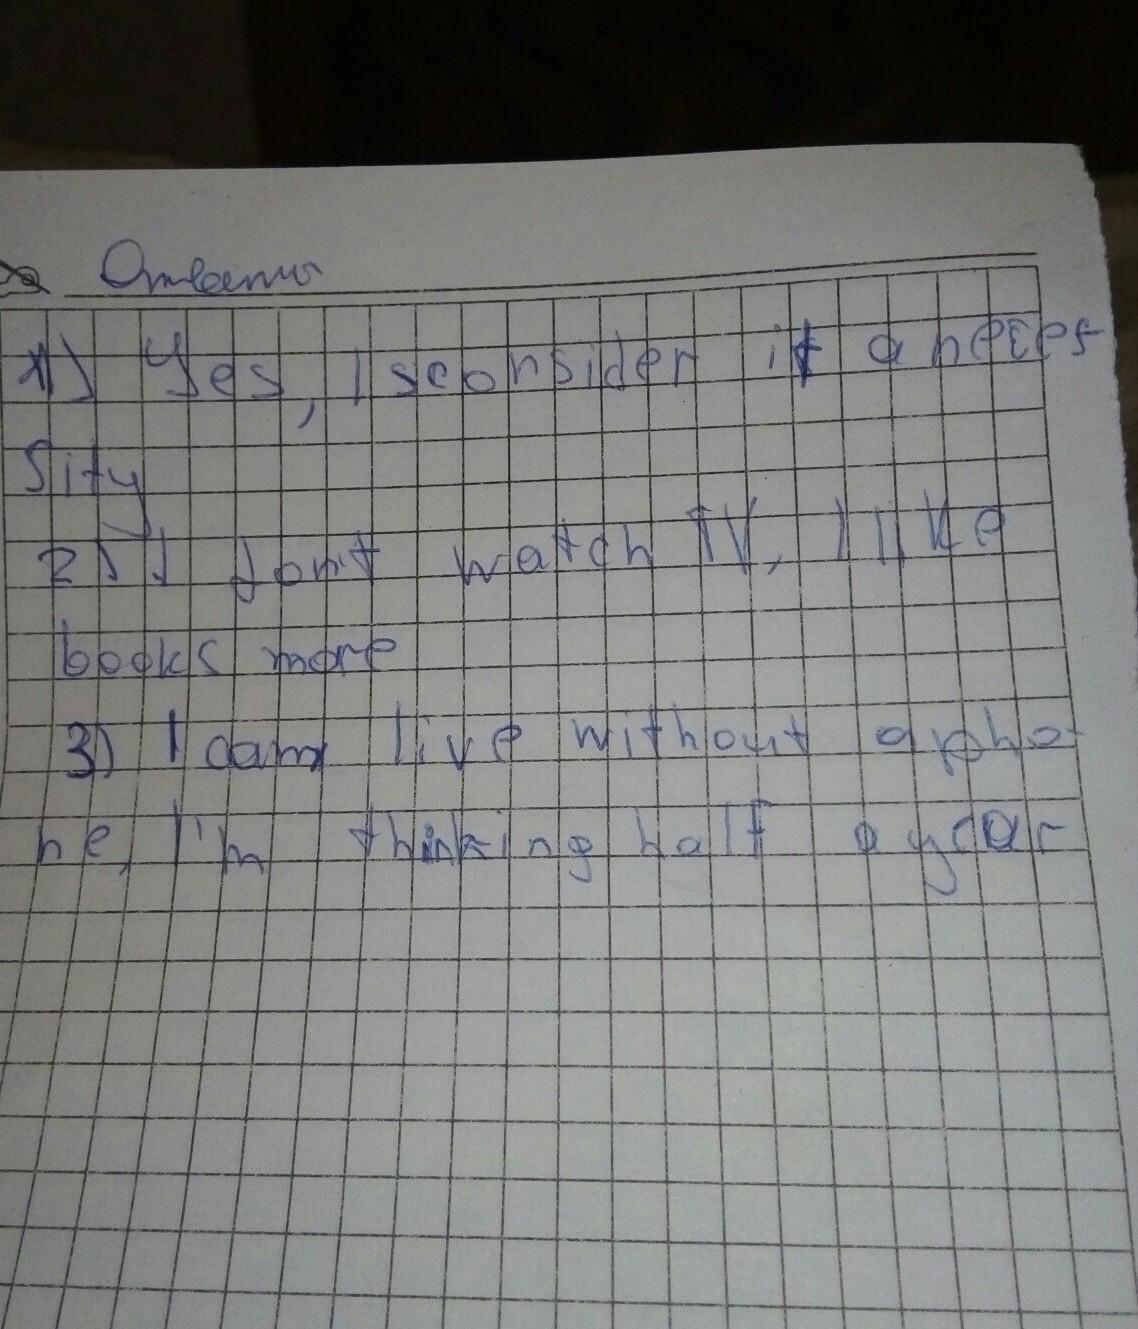 Ответы
1) Yes, I sconsider it a neces
sity
2) I don't watch TV, I like
books more
3) I can live without a pho-
ne, I'm thinking half a year